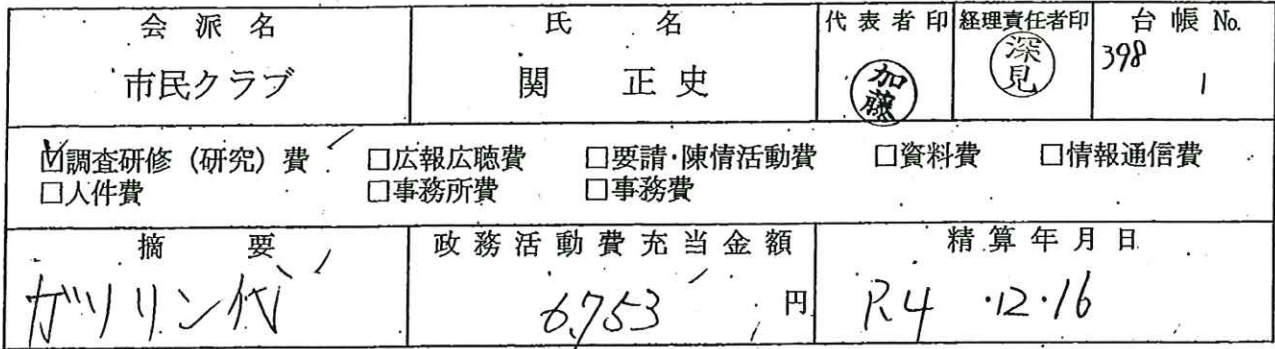 会派名 氏名 代表者印 経理責任者印 台帳 No.
市民クラブ 関 正史 加藤 深見 398
1
☑調査研修（研究）費 □広報広聴費 □要請・陳情活動費 □資料費 □情報通信費
□人件費 □事務所費 □事務費
摘要 政務活動費充当金額 精算年月日
ガソリン代 6,753 円 R.4・12・16